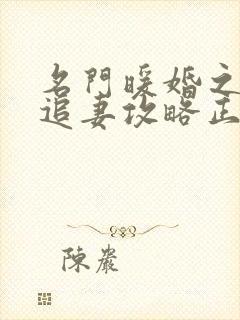 名門暖婚之
追妻攻略正
陳巖